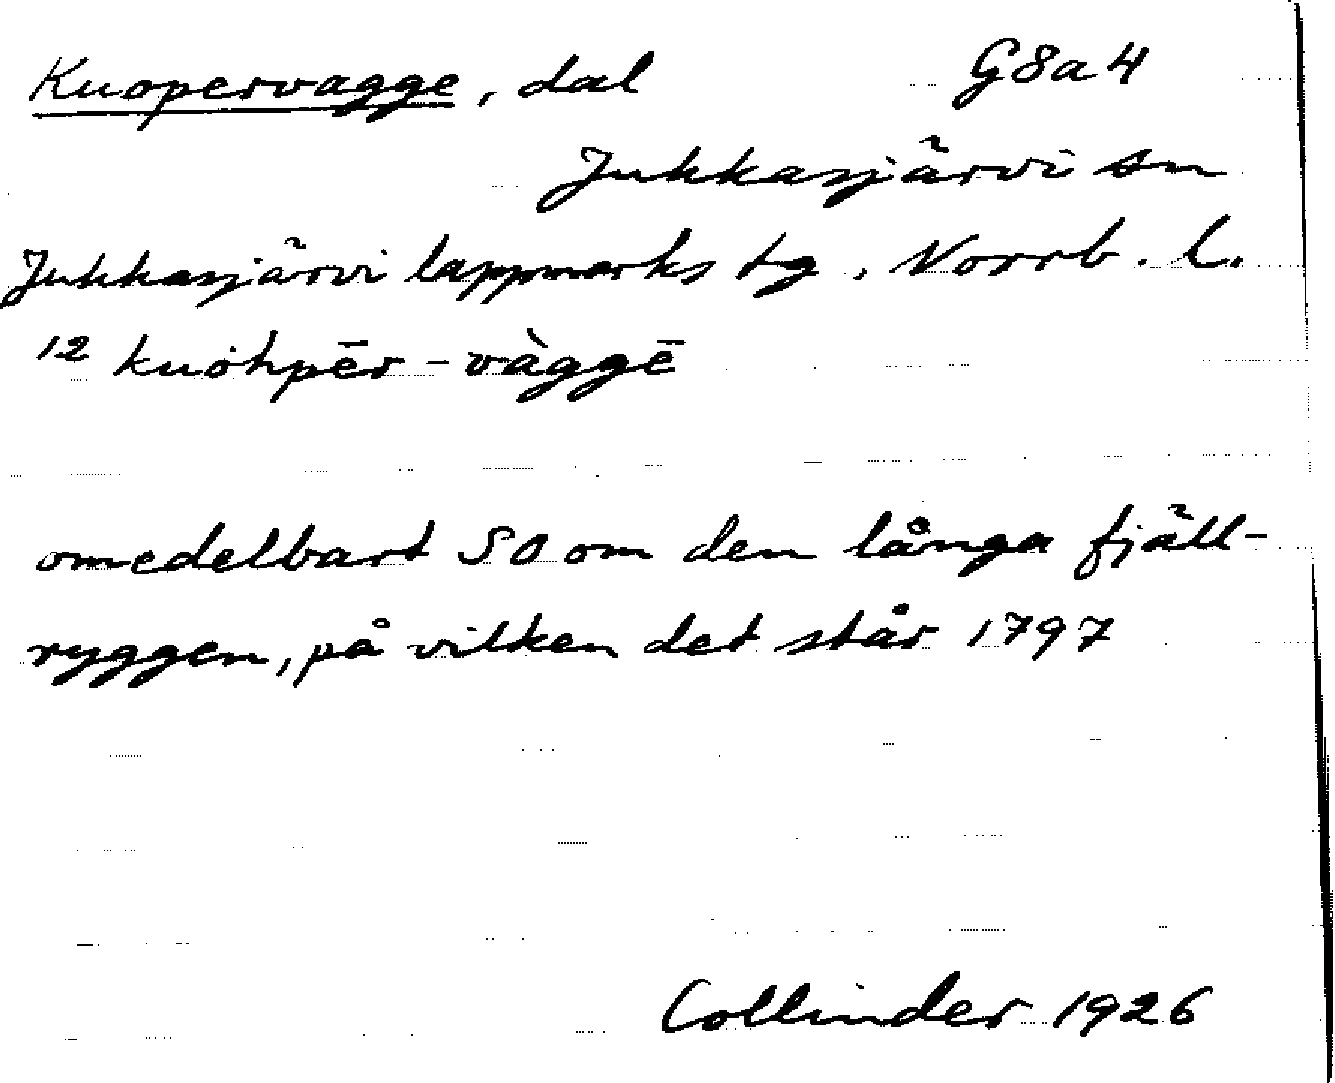 Kuopervagge, dal G8a4
Jukkasjärvi sn
Jukkasjärvi lappmarks tg. Norrb. l.
12 kuohpēr-vàggē
omedelbart SO om den långa fjäll-
ryggen, på vilken det står 1797
Collinder 1926